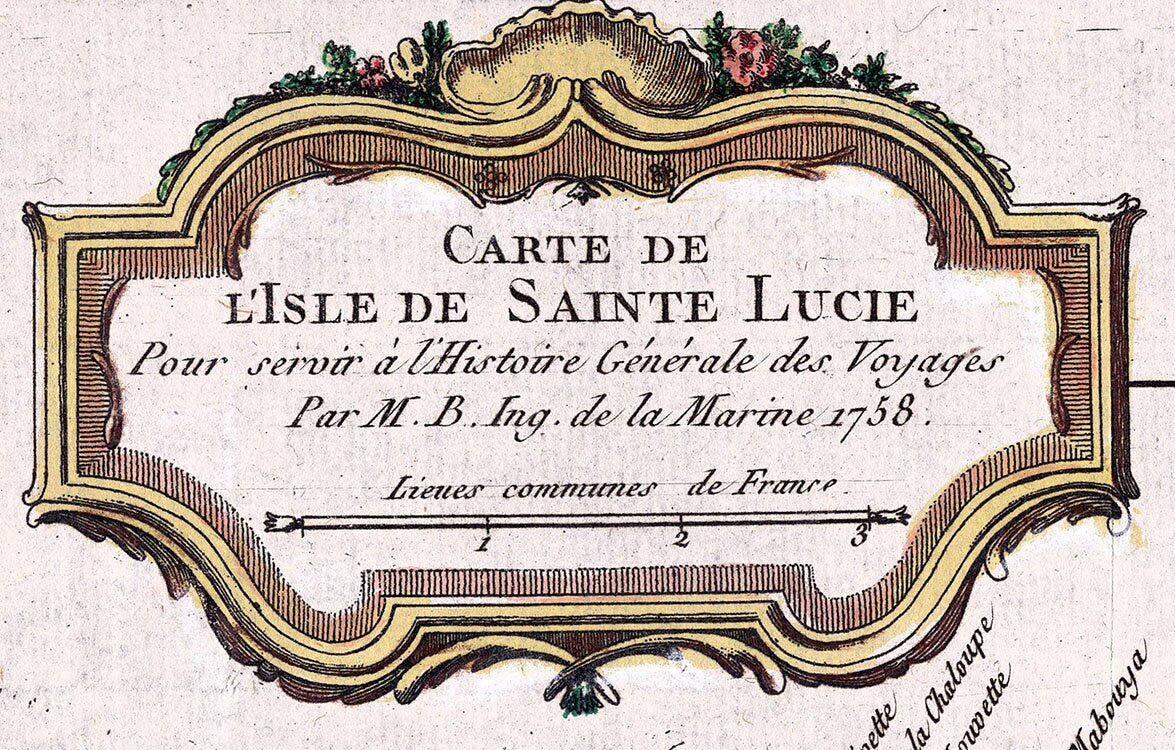 CARTE DE
L'ISLE DE SAINTE LUCIE
Pour servir à l'Histoire Générale des Voyages
Par M. B. Ing. de la Marine 1758.
Lieues communes de France.
1 2 3
la Chaloupe
Mabouya